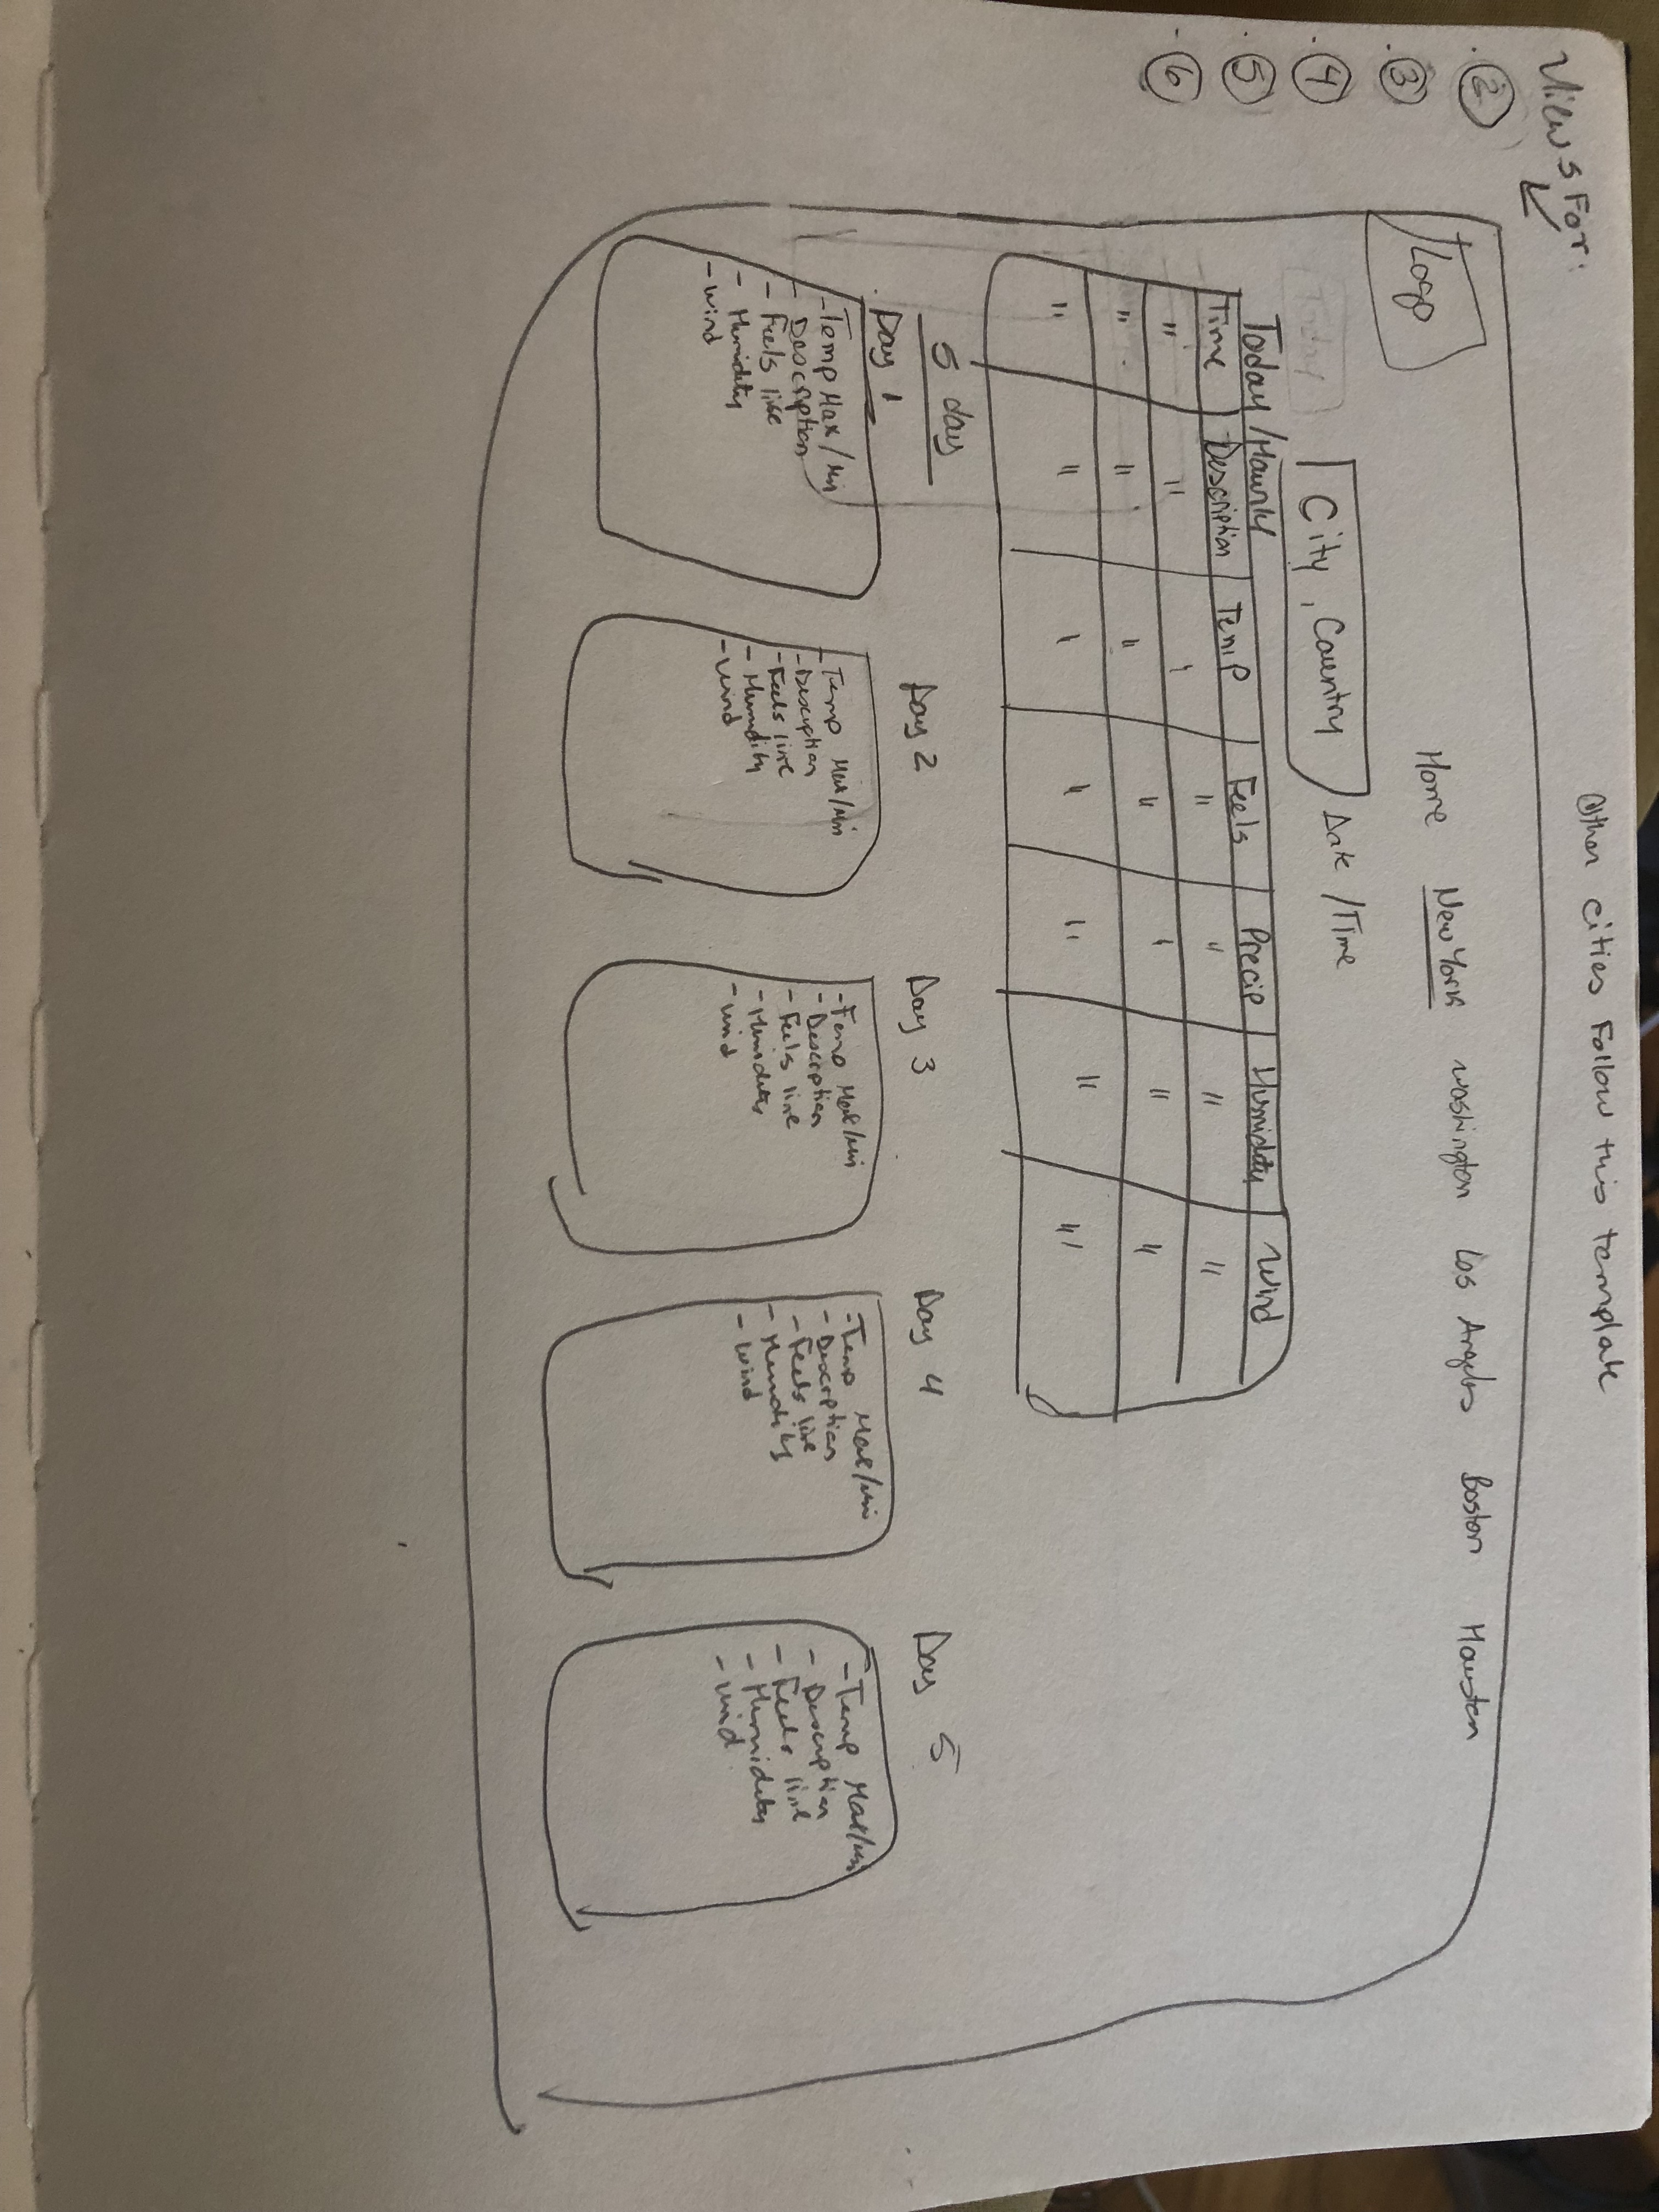 Views For:
Other cities Follow this template
2
3
4
5
6
Logo
Home New York Washington Los Angeles Boston Houston
City, Country Date / Time
Today / Hourly
Time Description Temp Feels Precip Humidity Wind
" " ' " " " "
" " " " ' " "
" " ' " " " "
5 day
Day 1
- Temp Max / Min
- Description
- Feels like
- Humidity
- Wind
Day 2
- Temp Max/Min
- Description
- Feels like
- Humidity
- Wind
Day 3
- Temp Max/Min
- Description
- Feels like
- Humidity
- Wind
Day 4
- Temp Max/Min
- Description
- Feels like
- Humidity
- Wind
Day 5
- Temp Max/Min
- Description
- Feels like
- Humidity
- Wind